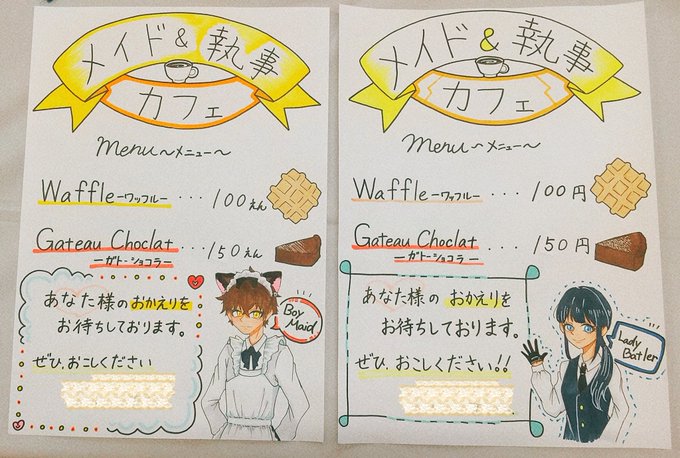 メイド&執事
カフェ
menu～メニュー～
Waffle－ワッフルー ･･･ 100えん
Gateau Choclat ･･･150えん
ーガトーショコラー
あなた様のおかえりを
お待ちしております。
ぜひ,おこしください
Boy
Maid
メイド&執事
カフェ
menu～メニュー～
Waffle－ワッフルー ･･･ 100円
Gateau Choclat ･･･ 150円
ーガトーショコラー
あなた様の おかえりを
お待ちしております。
ぜひ,おこしください!!
Lady
Batler